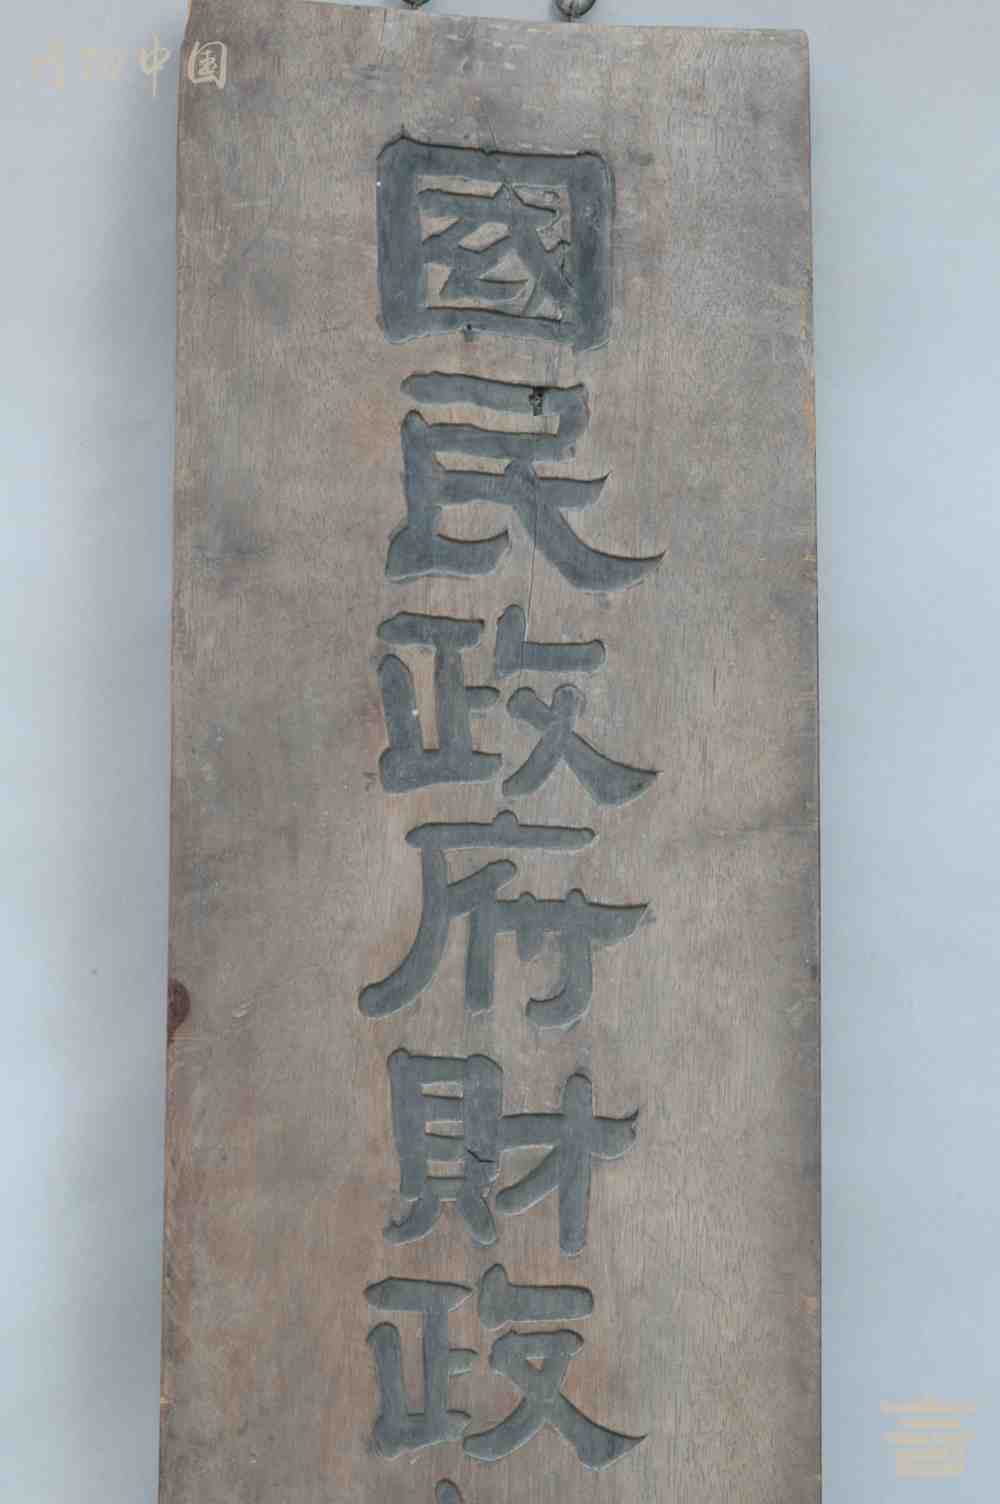 國民政府財政
中国